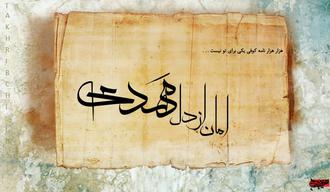 هزار هزار نامه کوفی یکی برای تو نیست ...
امان از دل مهدی